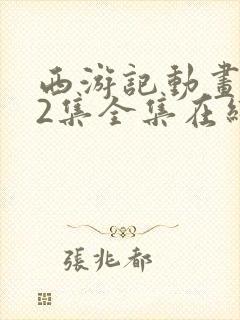 西游記動畫
2集全集在
張兆都